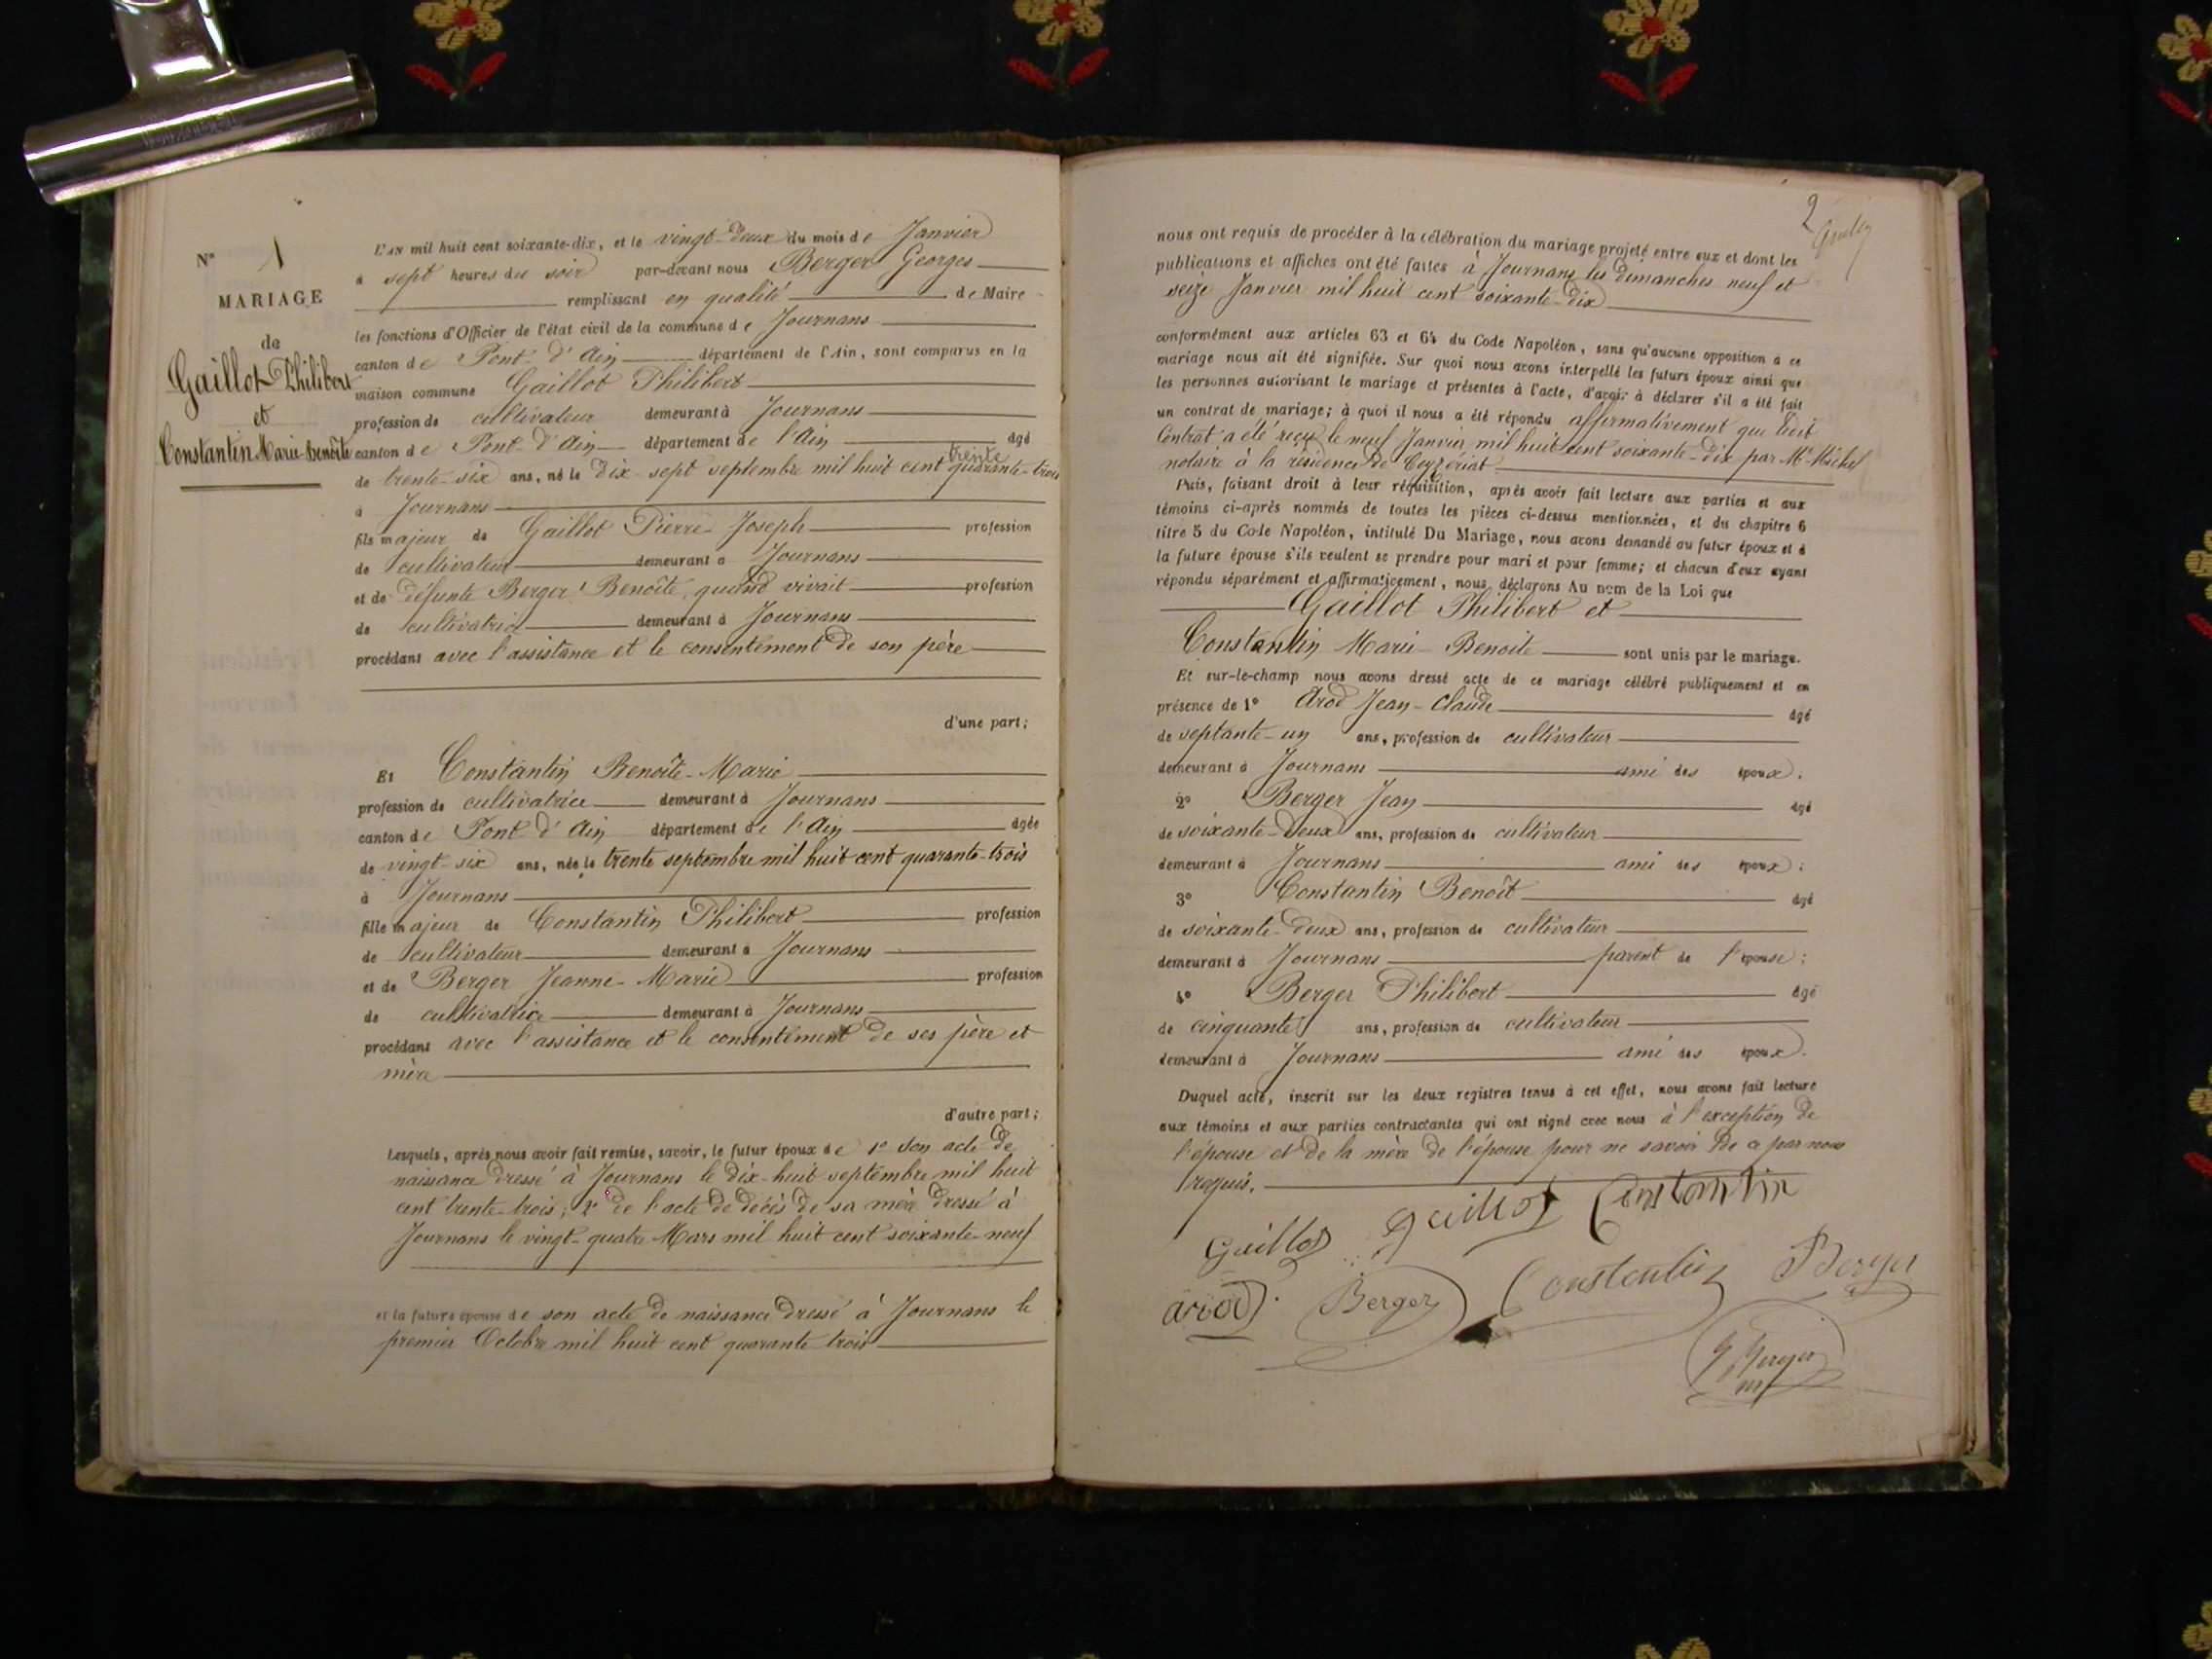 N° 1
MARIAGE
de
Gaillot Philibert
et
Constantin Marie-Benoîte
L'AN mil huit cent soixante-dix, et le vingt-deux du mois de Janvier
à sept heures du soir par-devant nous Berger Georges
remplissant en qualité de Maire
les fonctions d'Officier de l'état civil de la commune de Journans
canton de Pont-d'Ain département de l'Ain, sont comparus en la
maison commune Gaillot Philibert
profession de cultivateur demeurant à Journans
canton de Pont-d'Ain département de l'Ain âgé
trente
de trente-six ans, né le dix-sept septembre mil huit cent quarante-trois
à Journans
fils majeur de Gaillot Pierre-Joseph profession
de cultivateur demeurant à Journans
et de défunte Berger Benoîte, quand vivait profession
de cultivatrice demeurant à Journans
procédant avec l'assistance et le consentement de son père
d'une part;
Et Constantin Benoîte-Marie
profession de cultivatrice demeurant à Journans
canton de Pont-d'Ain département de l'Ain âgée
de vingt-six ans, née le trente septembre mil huit cent quarante-trois
à Journans
fille majeur de Constantin Philibert profession
de cultivateur demeurant à Journans
et de Berger Jeanne-Marie profession
de cultivatrice demeurant à Journans
procédant avec l'assistance et le consentement de ses père et
mère
d'autre part;
Lesquels, après nous avoir fait remise, savoir, le futur époux de 1° son acte de
naissance dressé à Journans le dix-huit septembre mil huit
cent trente-trois; 2° de l'acte de décès de sa mère dressé à
Journans le vingt-quatre Mars mil huit cent soixante-neuf
et la future épouse de son acte de naissance dressé à Journans le
premier Octobre mil huit cent quarante-trois
2
nous ont requis de procéder à la célébration du mariage projeté entre eux et dont les
publications et affiches ont été faites à Journans les dimanches neuf et
seize Janvier mil huit cent soixante-dix
conformément aux articles 63 et 64 du Code Napoléon, sans qu'aucune opposition à ce
mariage nous ait été signifiée. Sur quoi nous avons interpellé les futurs époux ainsi que
les personnes autorisant le mariage et présentes à l'acte, d'avoir à déclarer s'il a été fait
un contrat de mariage; à quoi il nous a été répondu affirmativement que ledit
Contrat a été reçu le neuf Janvier mil huit cent soixante-dix par Me Michel
notaire à la résidence de Ceyzériat
Puis, faisant droit à leur réquisition, après avoir fait lecture aux parties et aux
témoins ci-après nommés de toutes les pièces ci-dessus mentionnées, et du chapitre 6
titre 5 du Code Napoléon, intitulé Du Mariage, nous avons demandé au futur époux et à
la future épouse s'ils veulent se prendre pour mari et pour femme; et chacun d'eux ayant
répondu séparément et affirmativement, nous déclarons Au nom de la Loi que
Gaillot Philibert et
Constantin Marie-Benoite sont unis par le mariage.
Et sur-le-champ nous avons dressé acte de ce mariage célébré publiquement et en
présence de 1° Arod Jean-Claude âgé
de septante-un ans, profession de cultivateur
demeurant à Journans ami des époux.
2° Berger Jean âgé
de soixante-deux ans, profession de cultivateur
demeurant à Journans ami des époux;
3° Constantin Benoît âgé
de soixante-deux ans, profession de cultivateur
demeurant à Journans parent de l'épouse;
4° Berger Philibert âgé
de cinquante ans, profession de cultivateur
demeurant à Journans ami des époux.
Duquel acte, inscrit sur les deux registres tenus à cet effet, nous avons fait lecture
aux témoins et aux parties contractantes qui ont signé avec nous à l'exception de
l'épouse et de la mère de l'épouse pour ne savoir de ce par nous
requis.
Gaillot gaillot Constantin
arod Berger Constantin Berger
G Berger